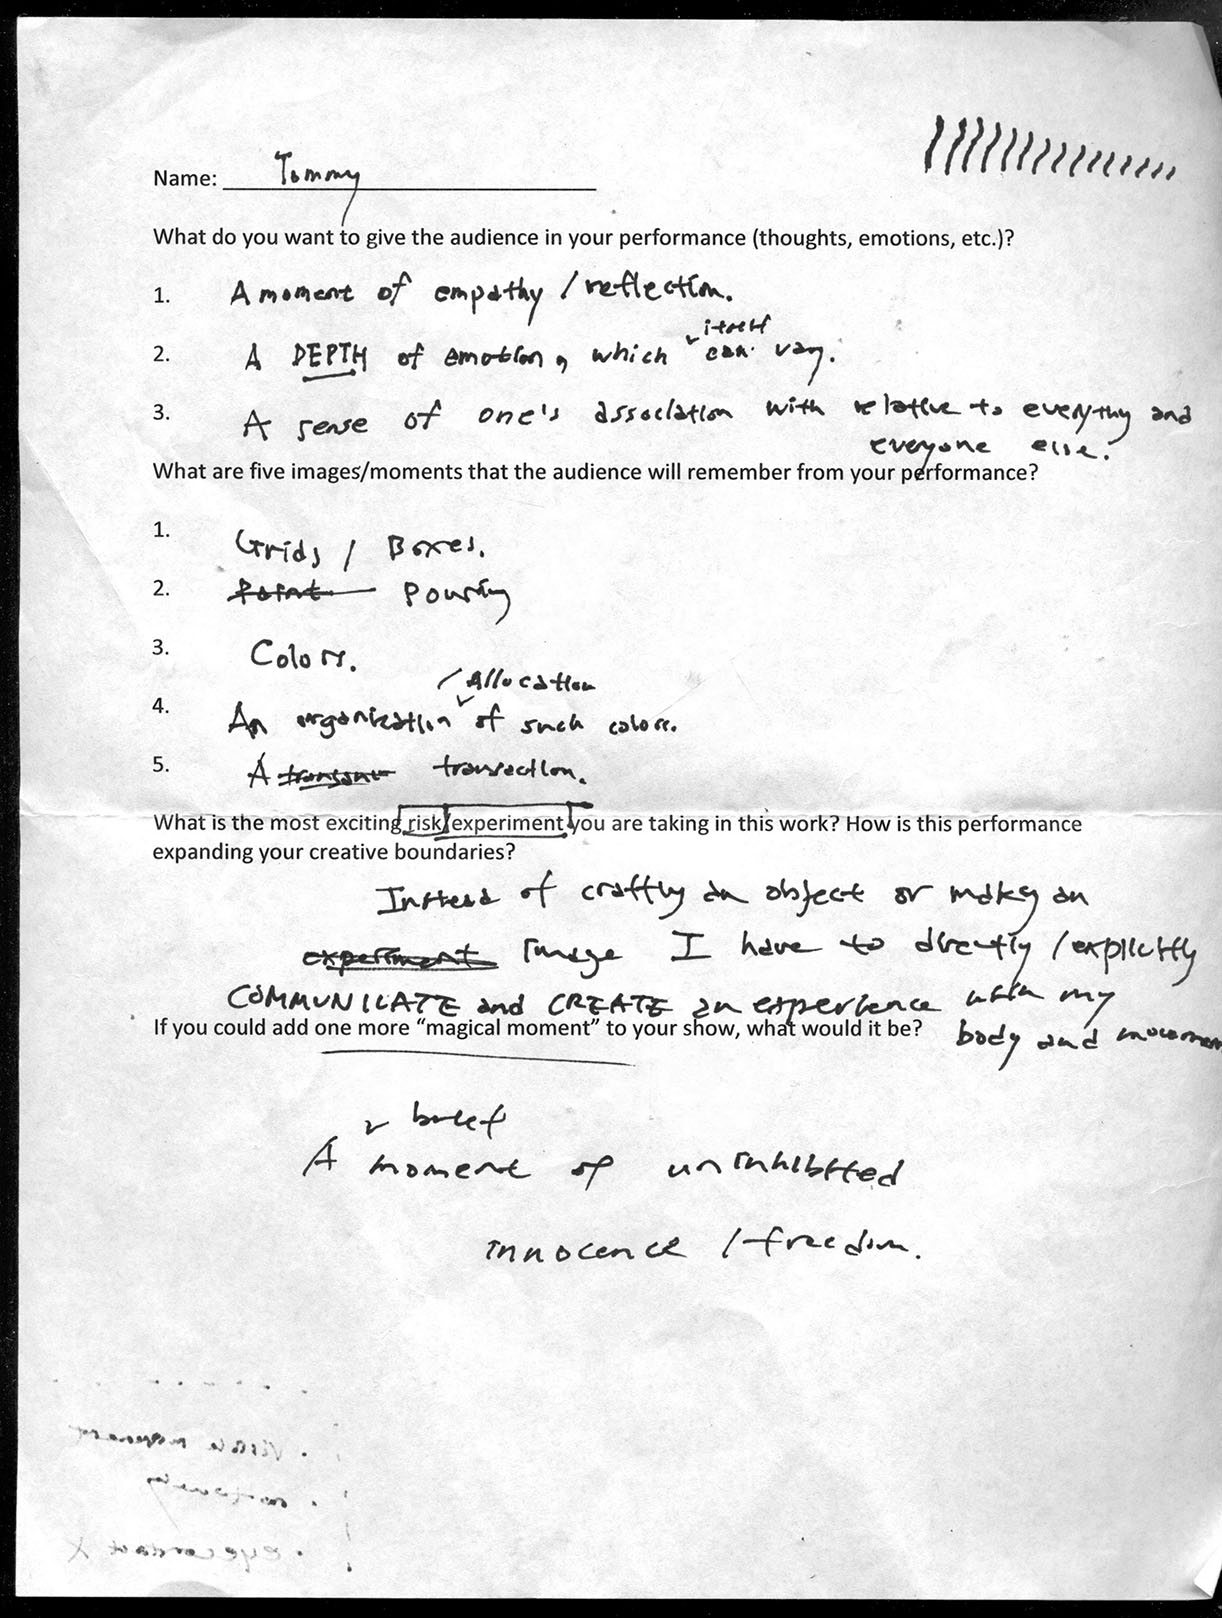 Name: Tommy
What do you want to give the audience in your performance (thoughts, emotions, etc.)?
1. A moment of empathy / reflection.
itself
2. A DEPTH of emotion, which can vary.
3. A sense of one's association with relative to everything and
everyone else.
What are five images/moments that the audience will remember from your performance?
1. Grids / Boxes.
2. Paint Pouring
3. Colors.
/ Allocation
4. An organization of such colors.
5. A transaction.
What is the most exciting risk/experiment you are taking in this work? How is this performance
expanding your creative boundaries?
Instead of crafting an object or making an
experiment image I have to directly / explicitly
COMMUNICATE and CREATE an experience with my
body and movement
If you could add one more “magical moment” to your show, what would it be?
brief
A moment of uninhibited
innocence / freedom.
eye contact X